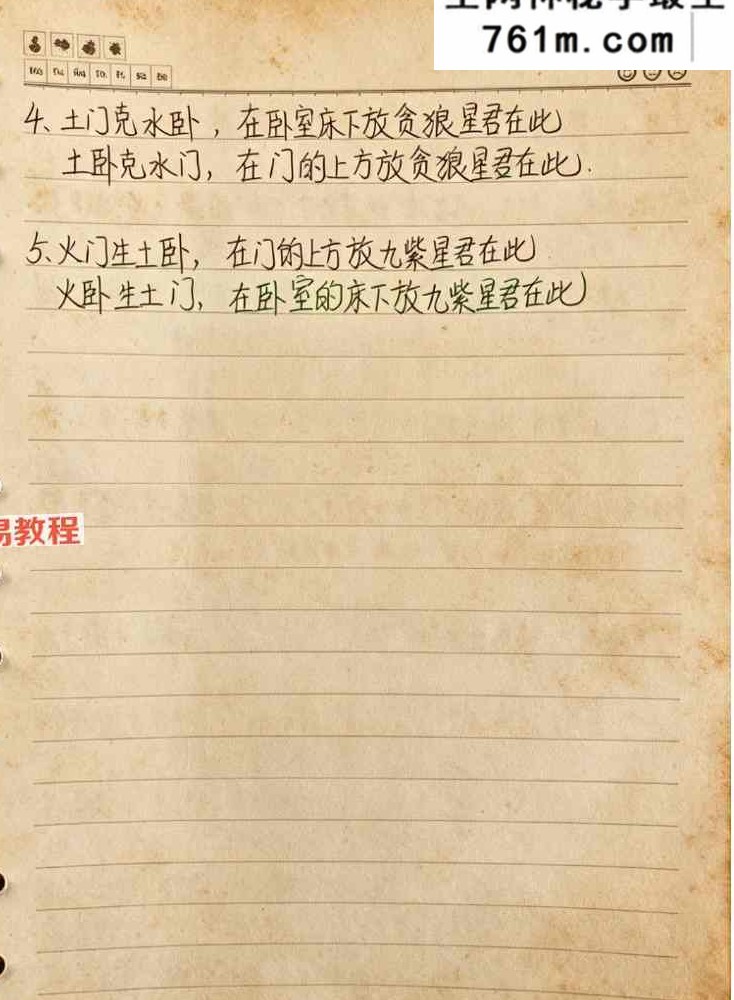 761m.com
4、土门克水卧，在卧室床下放贪狼星君在此
土卧克水门，在门的上方放贪狼星君在此.
5、火门生土卧，在门的上方放九紫星君在此
火卧生土门，在卧室的床下放九紫星君在此
易教程